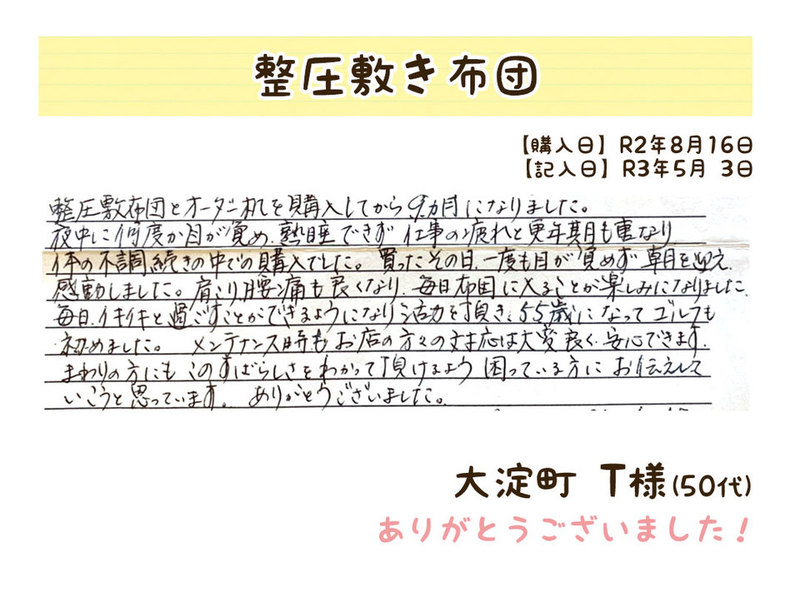 整圧敷き布団
【購入日】R2年8月16日
【記入日】R3年5月 3日
整圧敷布団とオーダー枕を購入してから9ヵ月になりました。
夜中に何度か目が覚め、熟睡できず 仕事の疲れと更年期も重なり
体の不調続きの中での購入でした。買ったその日、一度も目が覚めず 朝を迎え、
感動しました。肩こり、腰痛も良くなり、毎日布団に入ることが楽しみになりました。
毎日、イキイキと過ごすことができるようになり活力を頂き、55歳になってゴルフも
初めました。 メンテナンス時も お店の方々の対応は大変良く、安心できます。
まわりの方にも このすばらしさをわかって頂けるよう 困っている方に お伝えして
いこうと思っています。 ありがとうございました。
大淀町 T様(50代)
ありがとうございました！